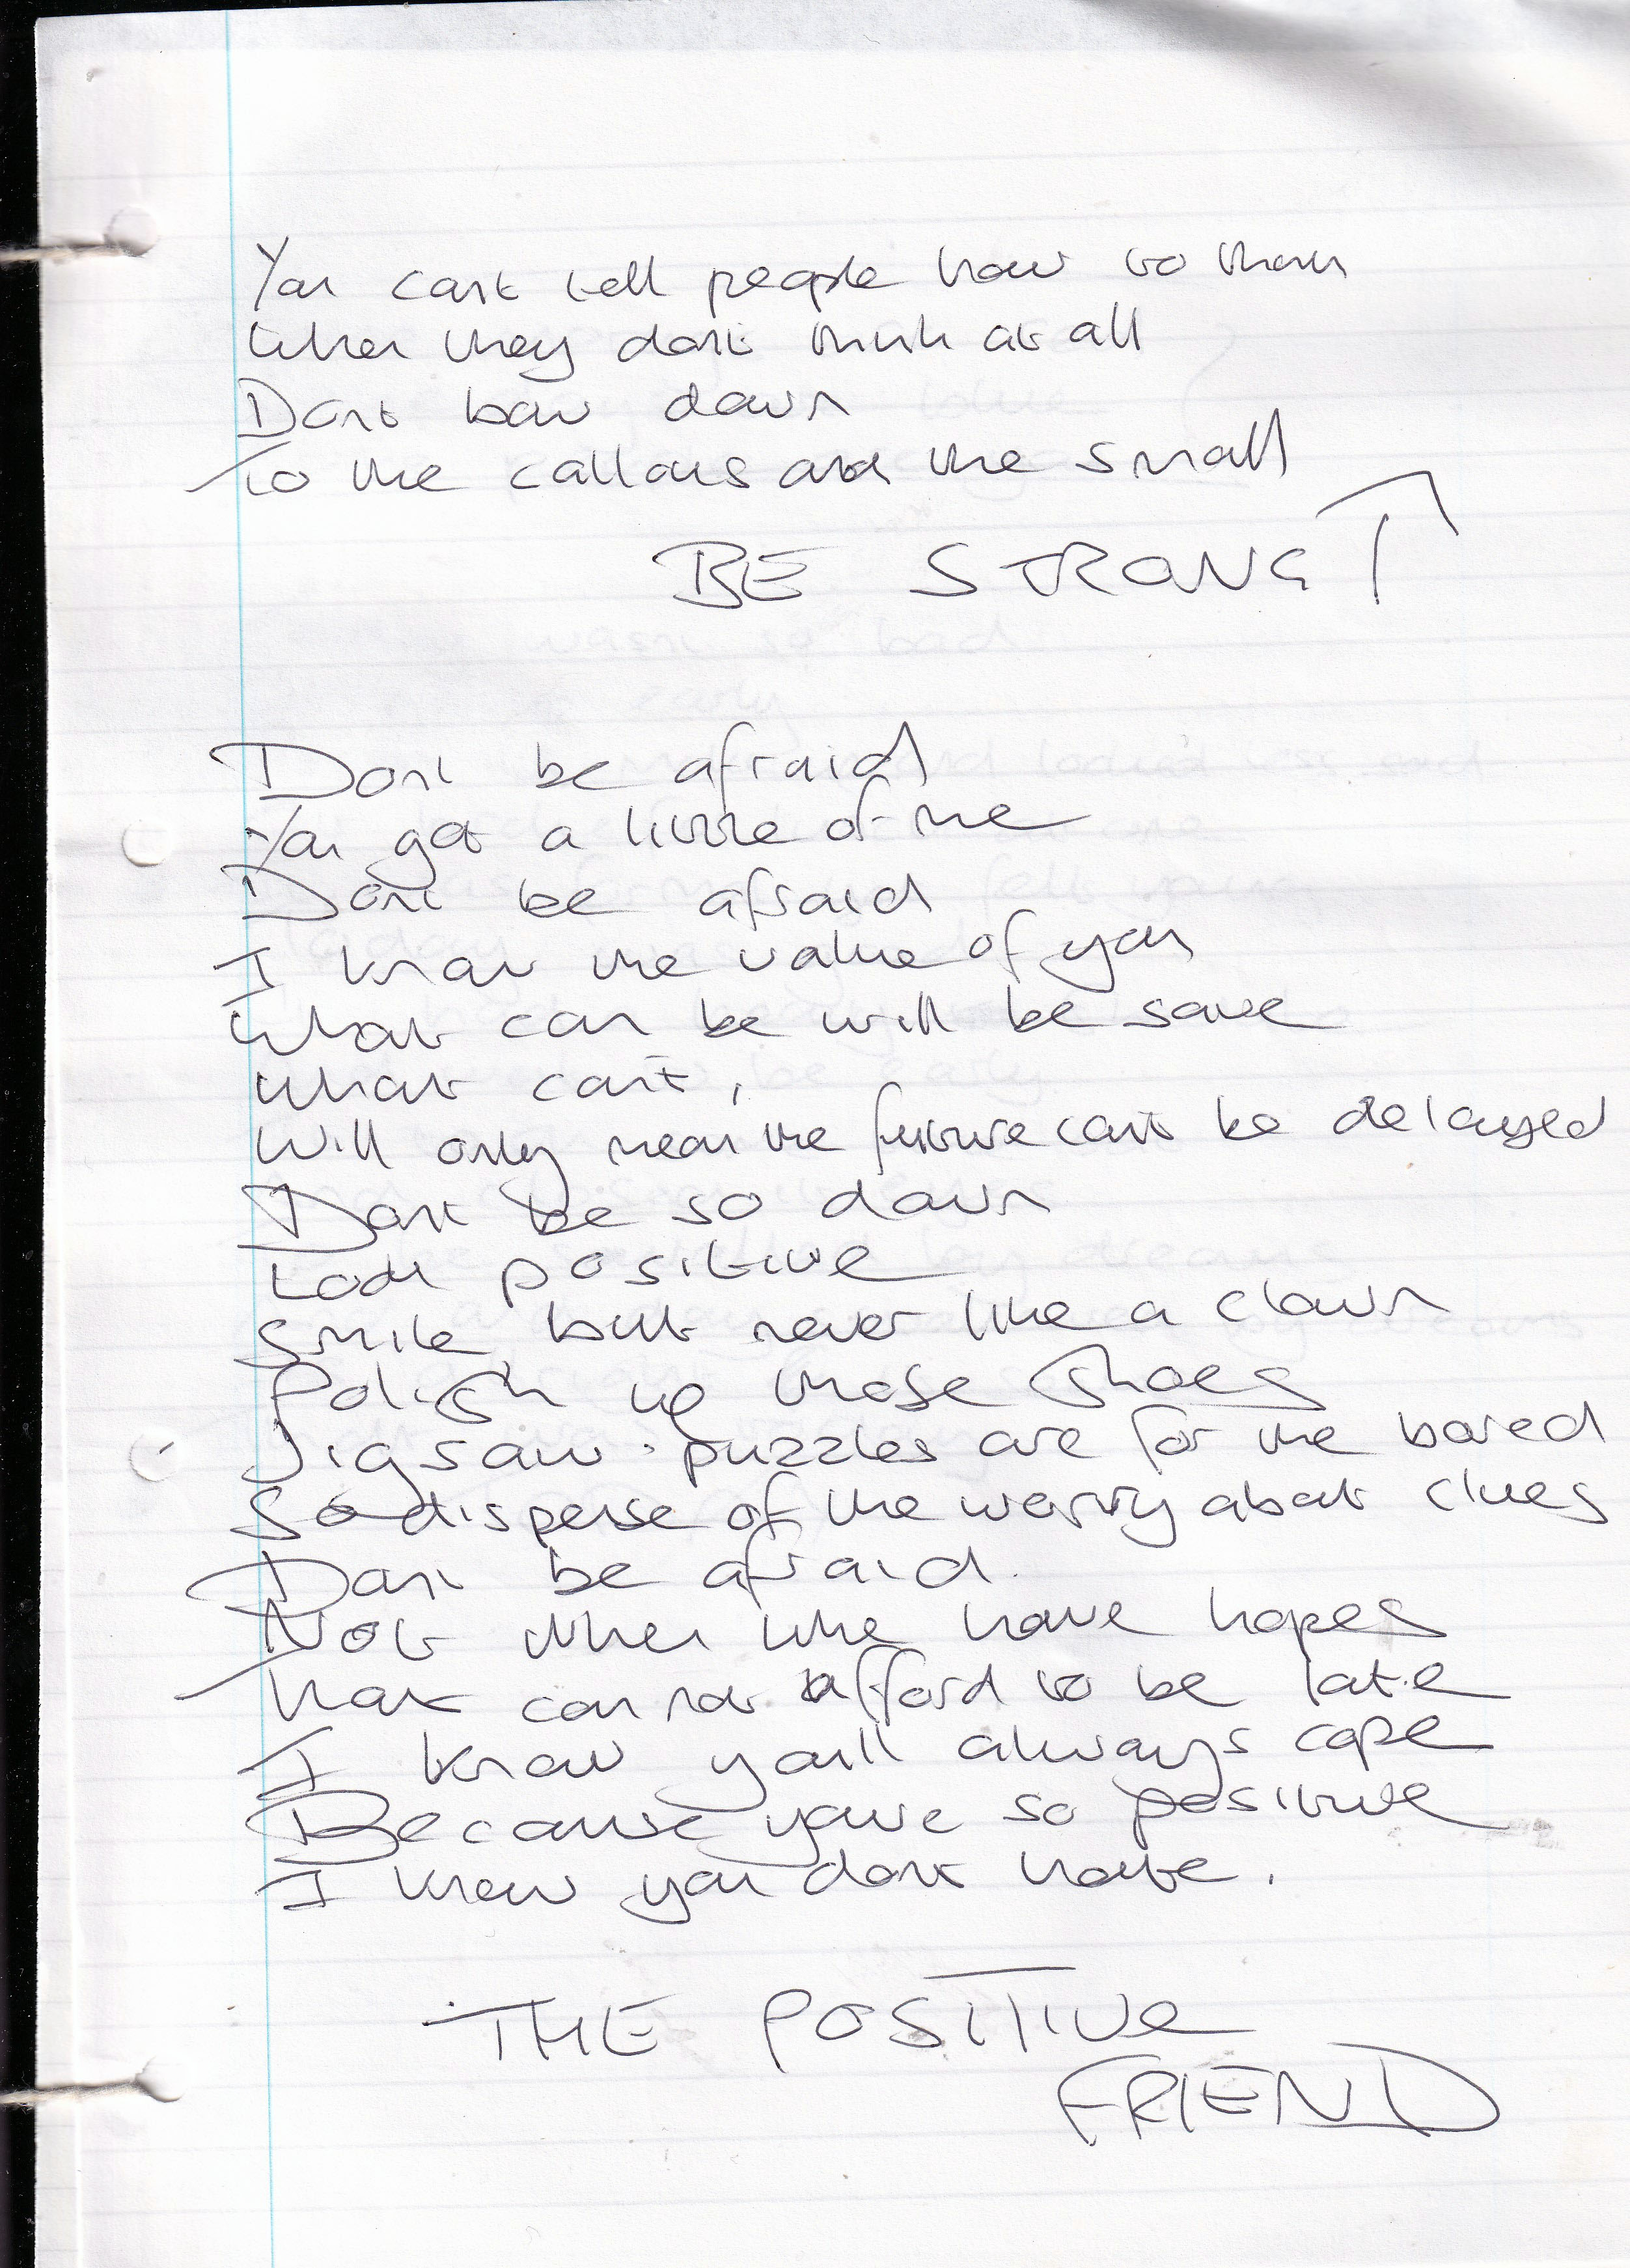 You cant tell people how to think
When they dont think at all
Dont bow down
To the callous and the small
BE STRONG
Dont be afraid
You got a little of me
Dont be afraid
I know the value of you
What can be will be save
What can't,
Will only mean the future cant be delayed
Dont be so down
Look positive
Smile but never like a clown
Polish up those shoes
Jigsaw puzzles are for the bored
So disperse of the worry about clues
Dont be afraid.
Not when we have hopes
That can not afford to be late
I know youll always cope
Because youre so positive
I know you dont hate.
THE POSITIVE
FRIEND